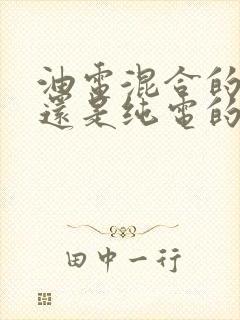 油電混合的
還是纯電的
田中一行